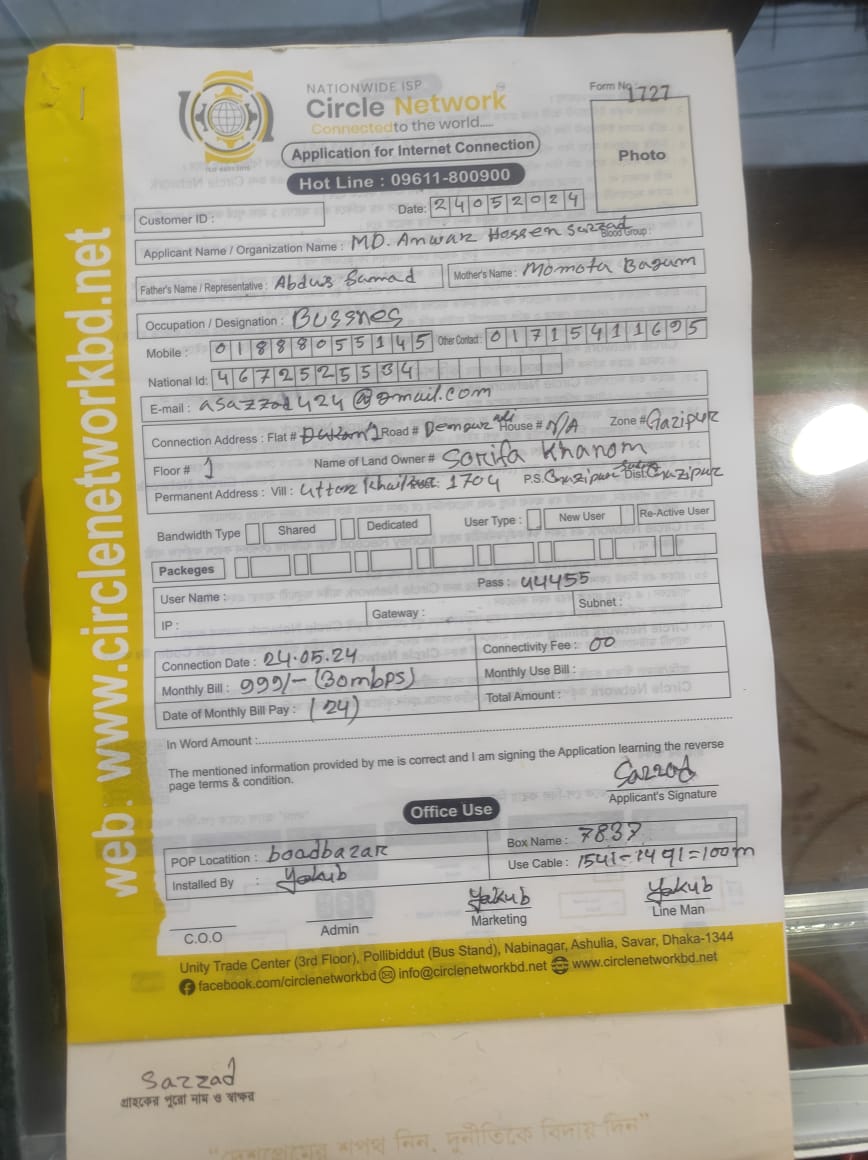 NATIONWIDE ISP
Circle Network
Connected to the world.....
Form No 1727
Photo
Application for Internet Connection
Hot Line : 09611-800900
Customer ID :
Date: 24052024
Applicant Name / Organization Name : MD. Anwar Hossen Sazzad Blood Group :
Father's Name / Representative : Abdus Samad Mother's Name : Momota Bagum
Occupation / Designation : Bussnes
Mobile : 01888055145 Other Contact : 01715411695
National Id: 4672525534
E-mail : asazzad424@gmail.com
Connection Address : Flat # Dukan 1 Road # House # N/A Zone # Gazipur
Floor # 1 Name of Land Owner # Sorifa Khanom
Permanent Address : Vill : 1704 P.S. Gazipur Dist: Gazipur
Bandwidth Type Shared Dedicated User Type : New User Re-Active User
Packeges
User Name : Pass : 44455
IP : Gateway : Subnet :
Connection Date : 24.05.24 Connectivity Fee : 00
Monthly Bill : 999/- (30mbps) Monthly Use Bill :
Date of Monthly Bill Pay : (24) Total Amount :
In Word Amount :
The mentioned information provided by me is correct and I am signing the Application learning the reverse
page terms & condition.
Sazzad
Applicant's Signature
Office Use
POP Locatition : boadbazar Box Name : 7837
Installed By : Yakub Use Cable : 1541-1491=100m
Yakub Yakub
C.O.O Admin Marketing Line Man
Unity Trade Center (3rd Floor), Pollibiddut (Bus Stand), Nabinagar, Ashulia, Savar, Dhaka-1344
facebook.com/circlenetworkbd info@circlenetworkbd.net www.circlenetworkbd.net
web. www.circlenetworkbd.net
Sazzad
গ্রাহকের পুরো নাম ও স্বাক্ষর
"দেশপ্রেমের শপথ নিন, দুর্নীতিকে বিদায় দিন"